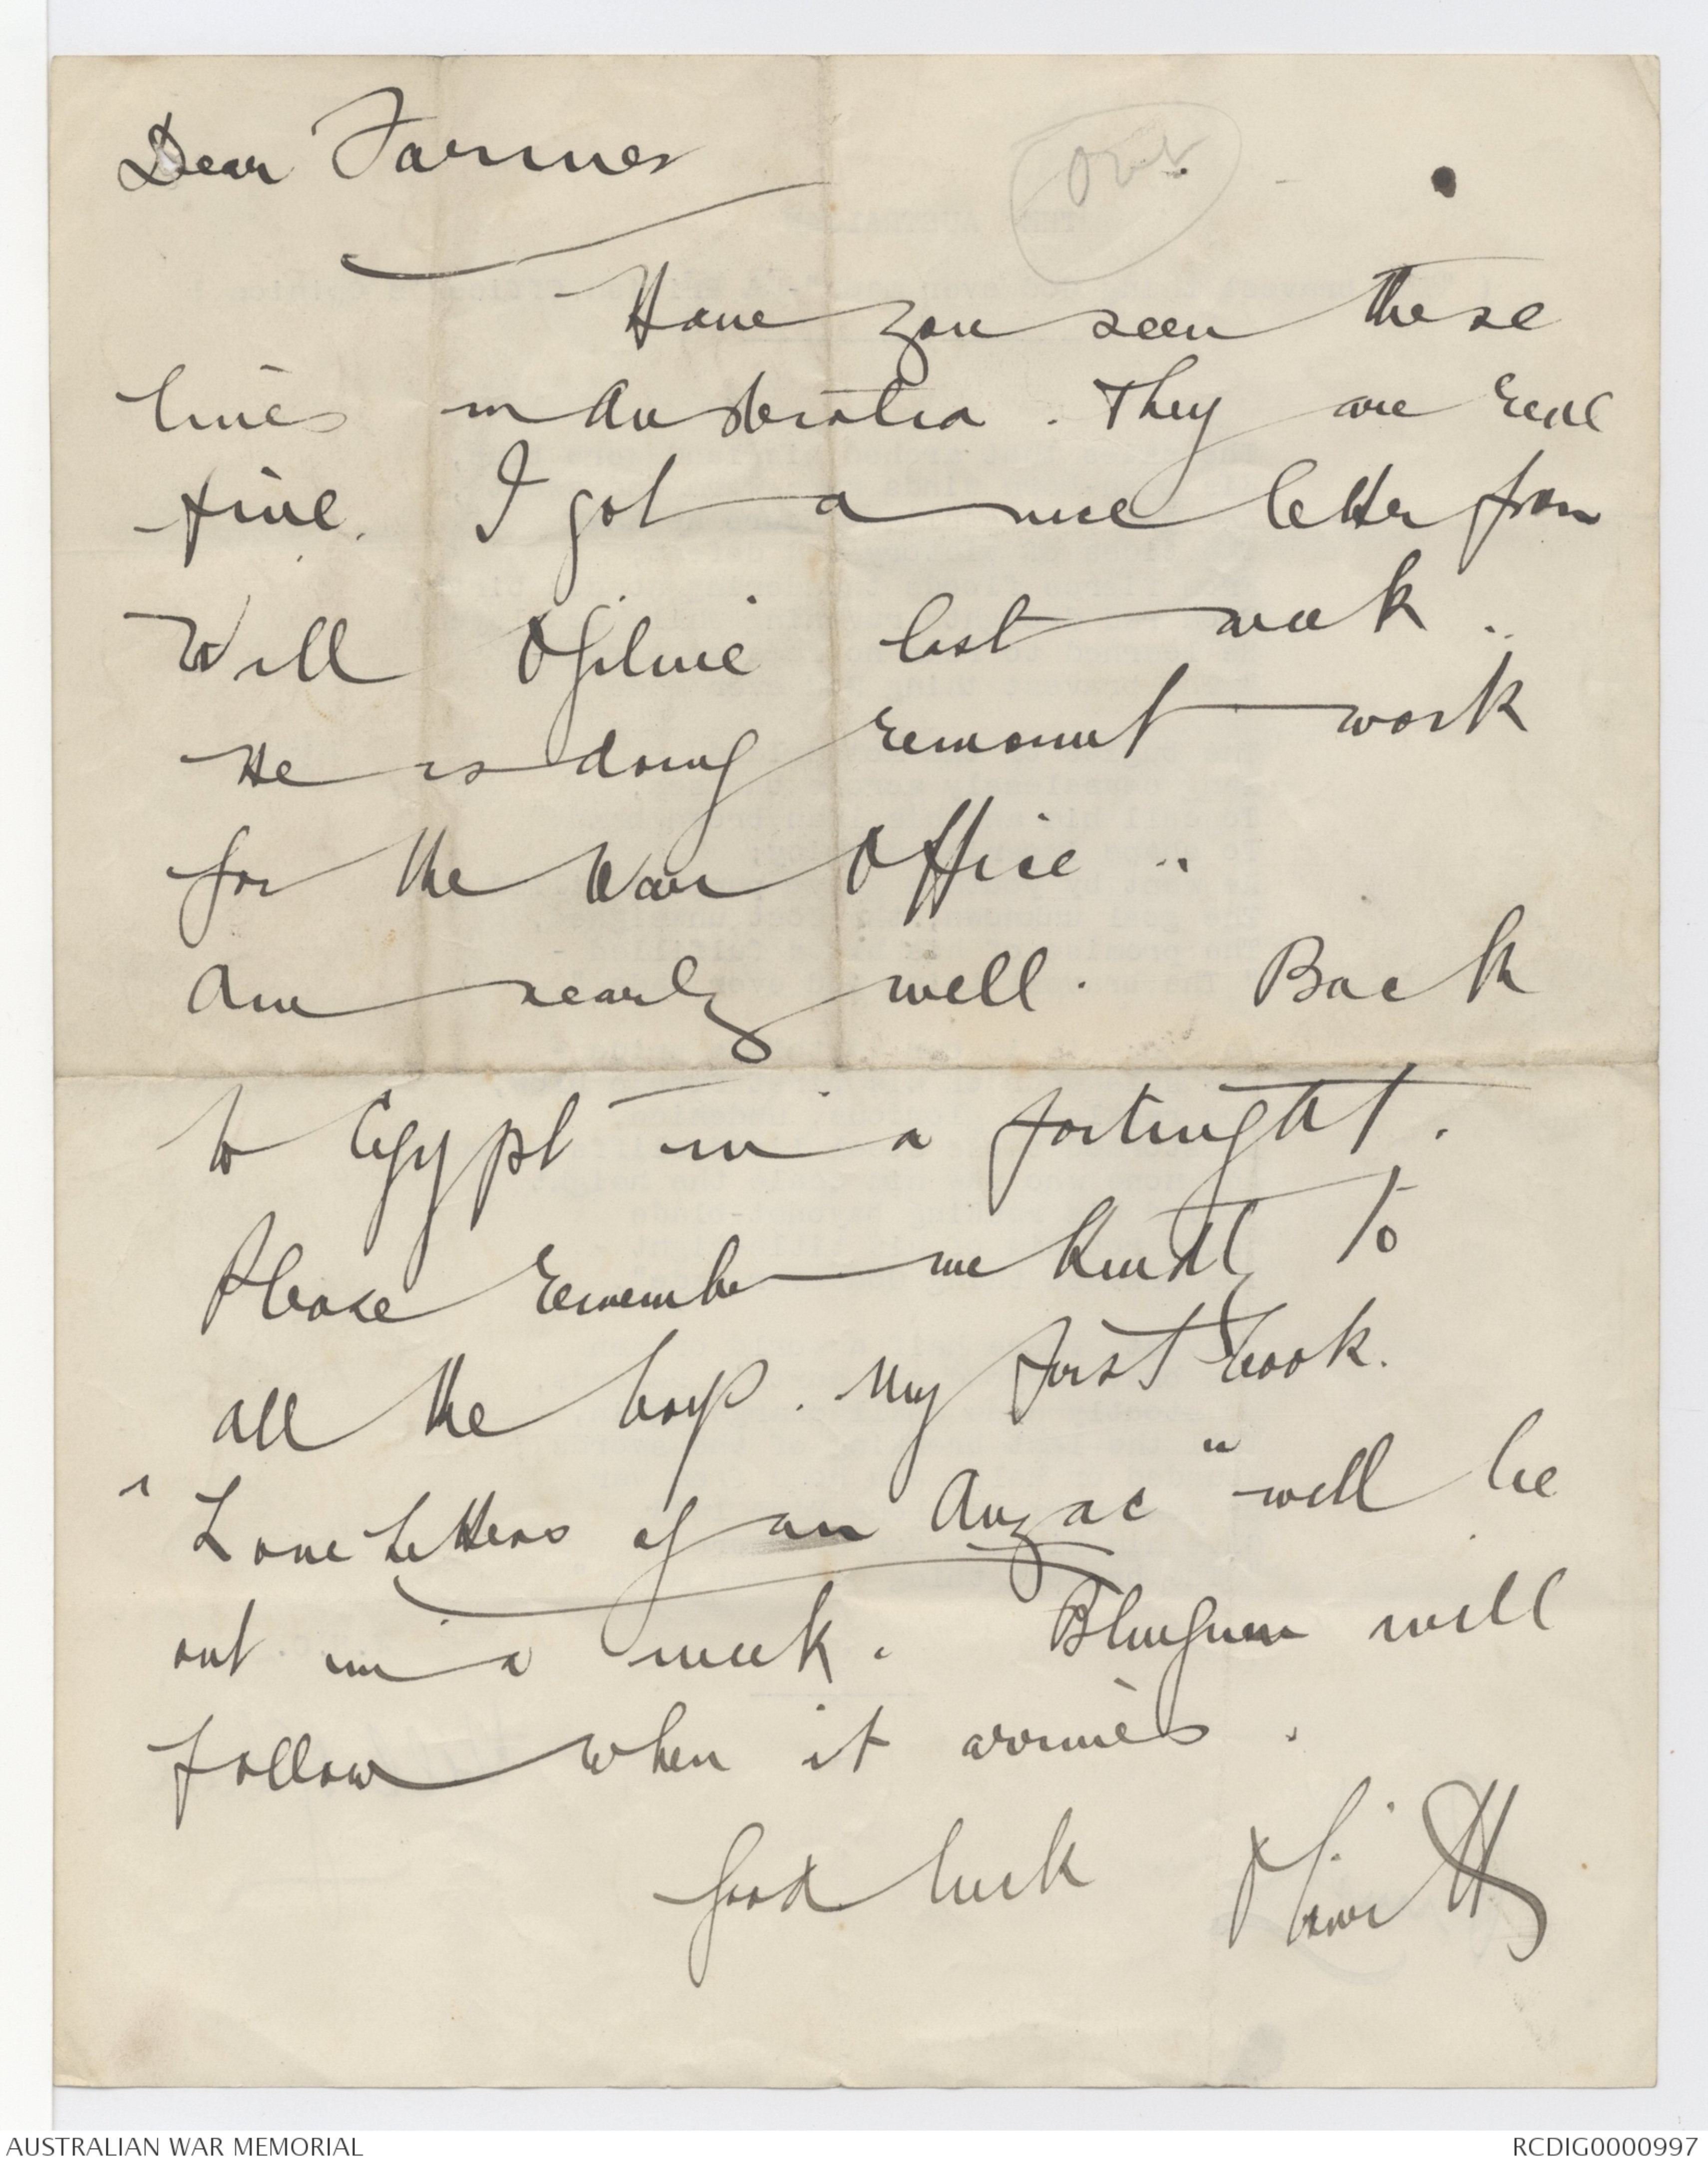 Dear Farmer
over
Have you seen these
lines in Australia. They are real
fine. I got a nice letter from
Will Ogilvie last week..
He is doing remount work
for the War Office ..
Am nearly well. Back
to Egypt in a fortnight.
Please remember me kindly to
all the boys. My first book.
"Love Letters of an Anzac" will be
out in a week. Bluegum will
follow when it arrives.
Good luck Oliver H
AUSTRALIAN WAR MEMORIAL
RCDIG0000997